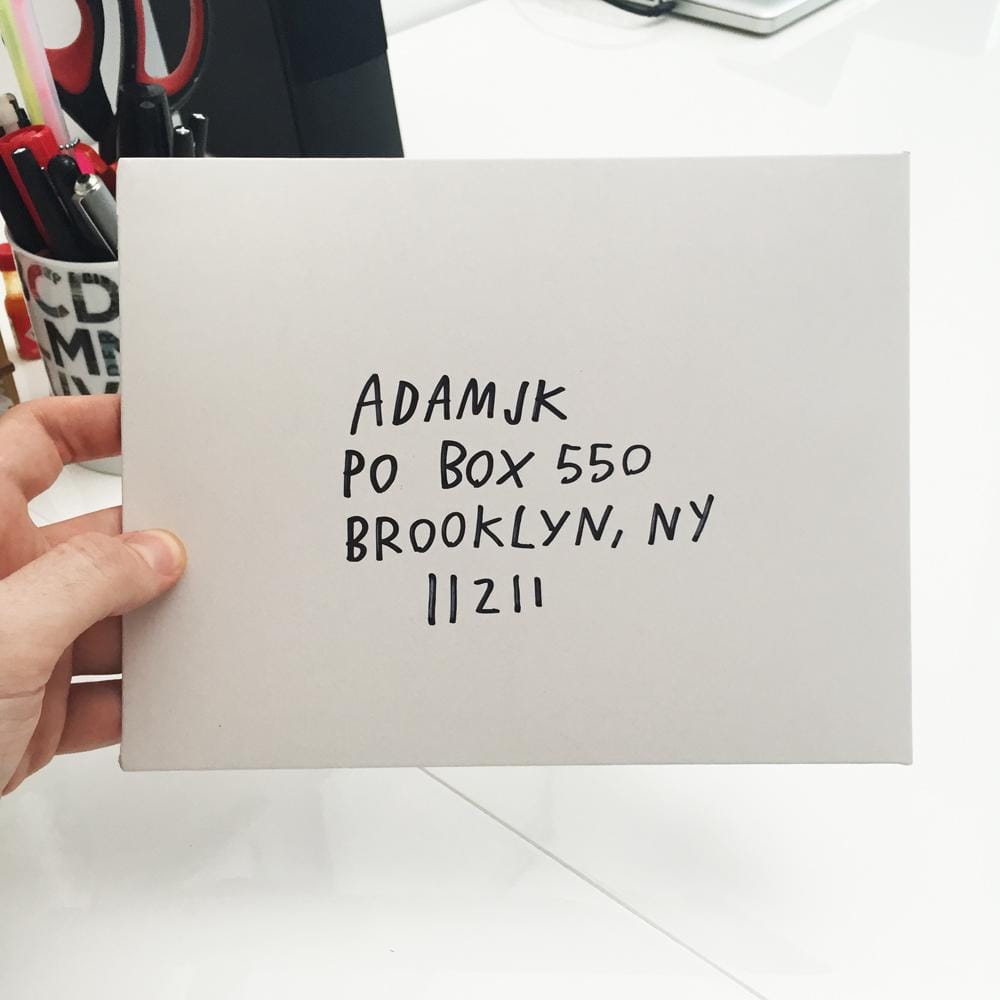 ADAMJK
PO BOX 550
BROOKLYN, NY
11211
CD
LM